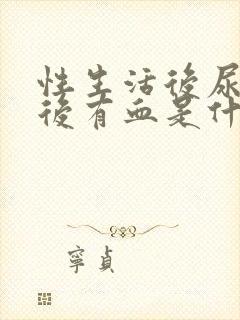 性生活後尿
後有血是什
寧貞